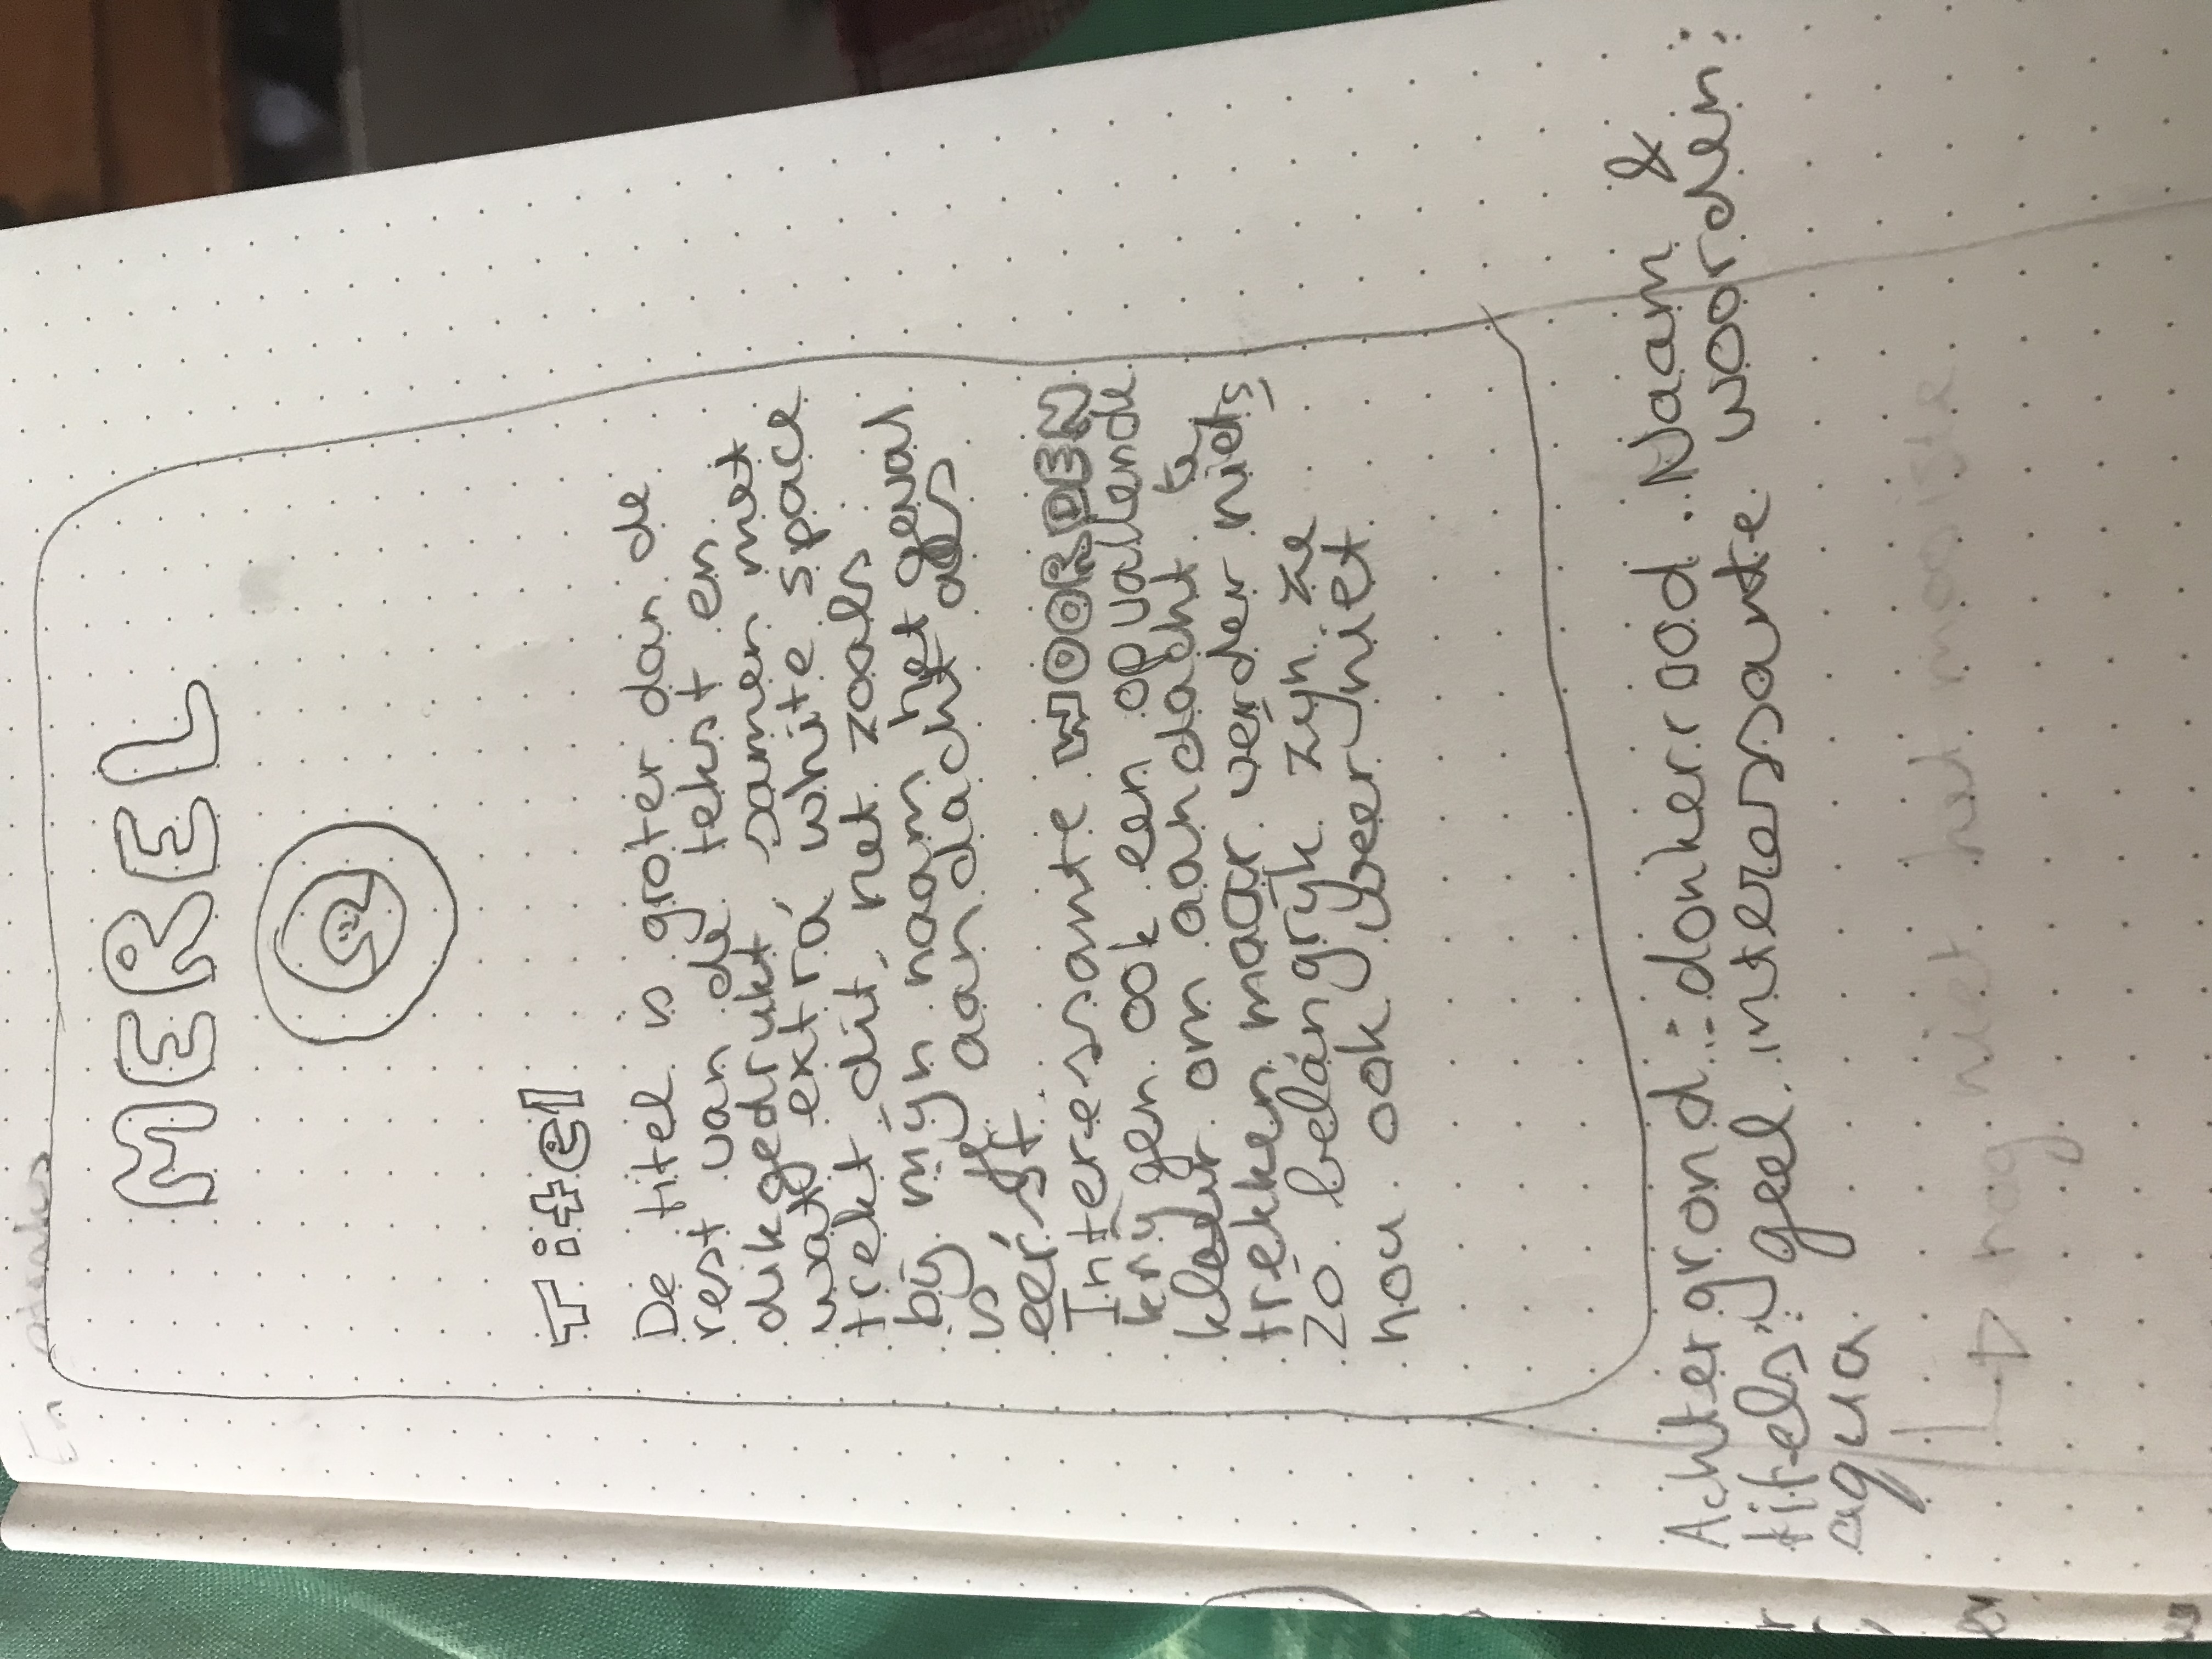 En straks
MEREL
Titel
De titel is groter dan de
rest van de tekst en
dikgedrukt, samen met
wat extra white space
trekt dit, net zoals
bij mijn naam het geval
is, je aandacht als
eerst.
Interessante WOORDEN
krijgen ook een opvallende
kleur om aandacht te
trekken maar verder niets
zo belangrijk zijn ze
nou ook weer niet
Achtergrond: donkerrood. Naam &
titels: geel interessante woorden:
aqua.
nog niet het mooiste
er